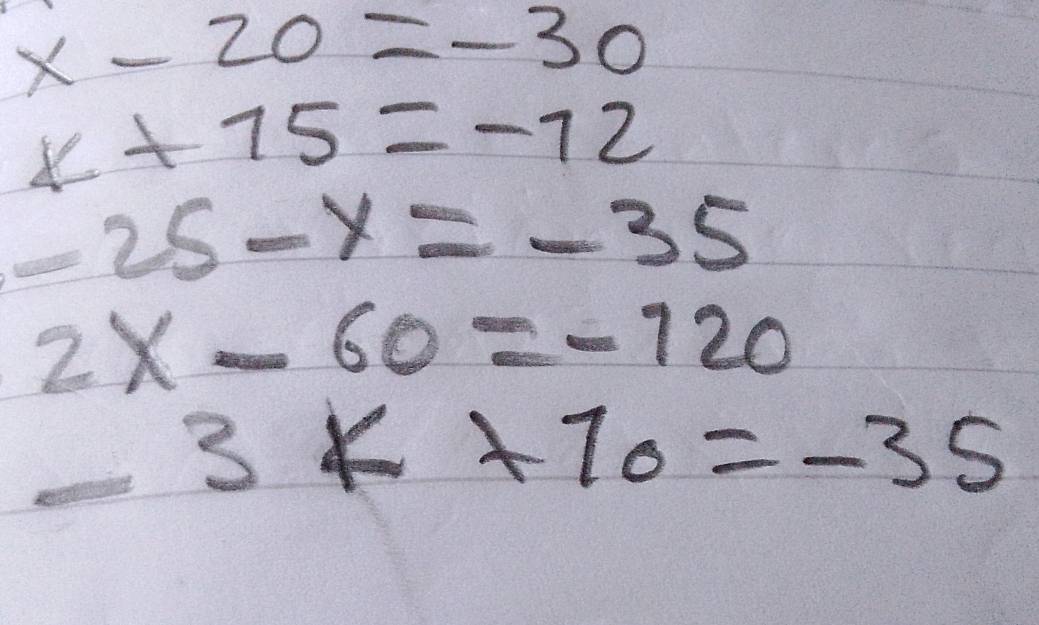 x - 20 = - 30
K + 15 = - 12
- 25 - x = - 35
2x - 60 = - 120
- 3 K + 10 = - 35